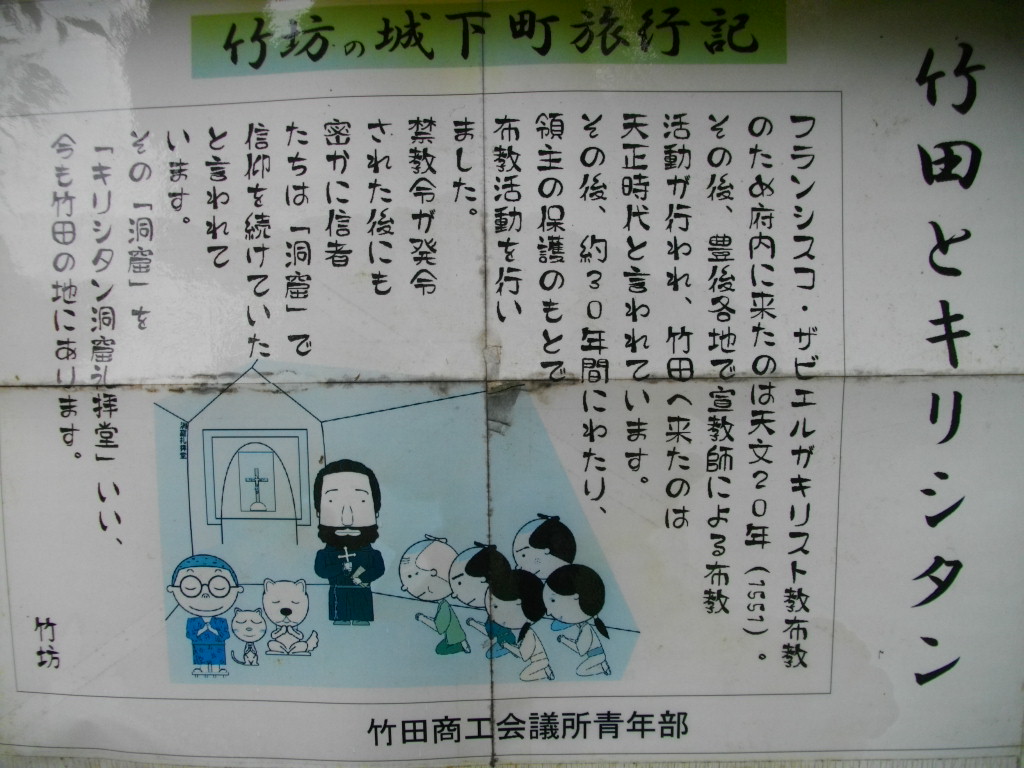 竹坊の城下町旅行記
竹田とキリシタン
フランシスコ・ザビエルがキリスト教布教
のため府内に来たのは天文20年(1551)。
その後、豊後各地で宣教師による布教
活動が行われ、竹田へ来たのは
天正時代と言われています。
その後、約30年間にわたり、
領主の保護のもとで
布教活動を行い
ました。
禁教令が発令
された後にも
密かに信者
たちは「洞窟」で
信仰を続けていた
と言われて
います。
その「洞窟」を
「キリシタン洞窟礼拝堂」いい、
今も竹田の地にあります。
竹坊
洞窟礼拝堂
竹田商工会議所青年部